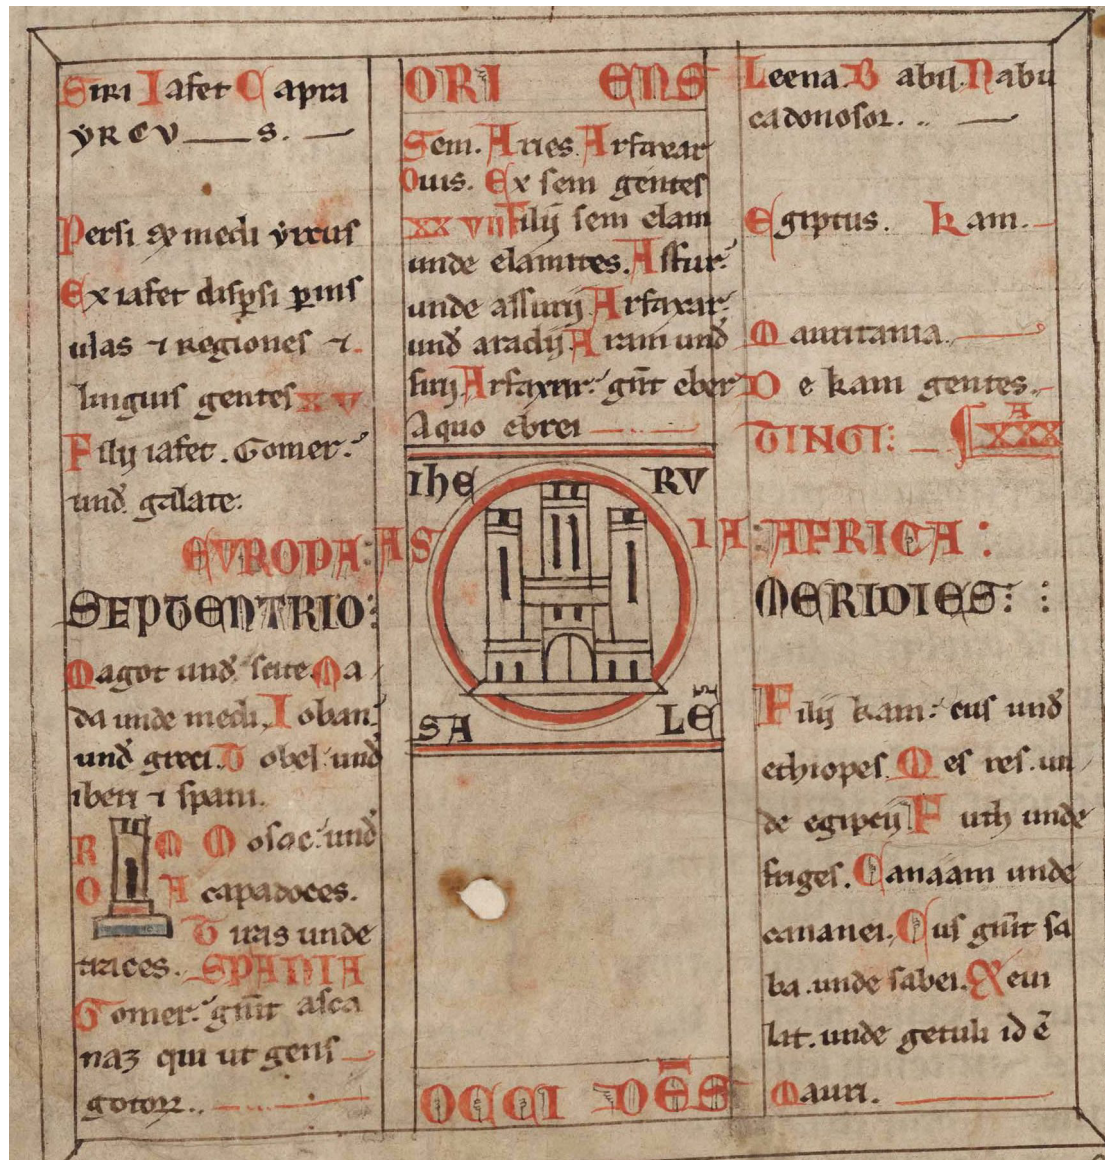 Siri Iafet Capra
YRCV s.
Persi & medi yrcus
Ex iafet disp̱si ꝑ ins
ulas ⁊ regiones ⁊
linguis gentes xv
Filij iafet. Gomer.
und̄ galate:
EVROPA:
SEPTENTRIO:
Magot und̄ scite Ma
da unde medi. Ioban.
und̄ greci. Tobel: und̄
iberi ⁊ spani.
ROMA
Mosoc: und̄
capadoces.
Tiras unde
traces. SPANIA
Gomer: gn̄it asca
naz qui ut gens
gotoꝝ..
ORI ENS
Sem. Aries. Arfaxar
Ouis. Ex sem gentes
xx vii Filij sem elam
unde elamites. Assur:
unde assurij Arfaxar:
und̄ aradij Aram und̄
sirij Arfaxar: gn̄it eber
A quo ebrei
IHE RV
AS IA
SA LE̅
OCCI DE̅S
Leena. Babil. Nabu
cadonosor..
Egiptus. Kam.
Mauritania.
De kam gentes.
TINGI: XXX A
AFRICA:
MERIDIES:
Filij kam: cus und̄
ethiopes. Mesres. un
de egiptij Futh unde
fuges. Canaam unde
cananei. Cus gn̄it sa
ba. unde sabei. Xeui
lit. unde getuli id ē
Mauri.